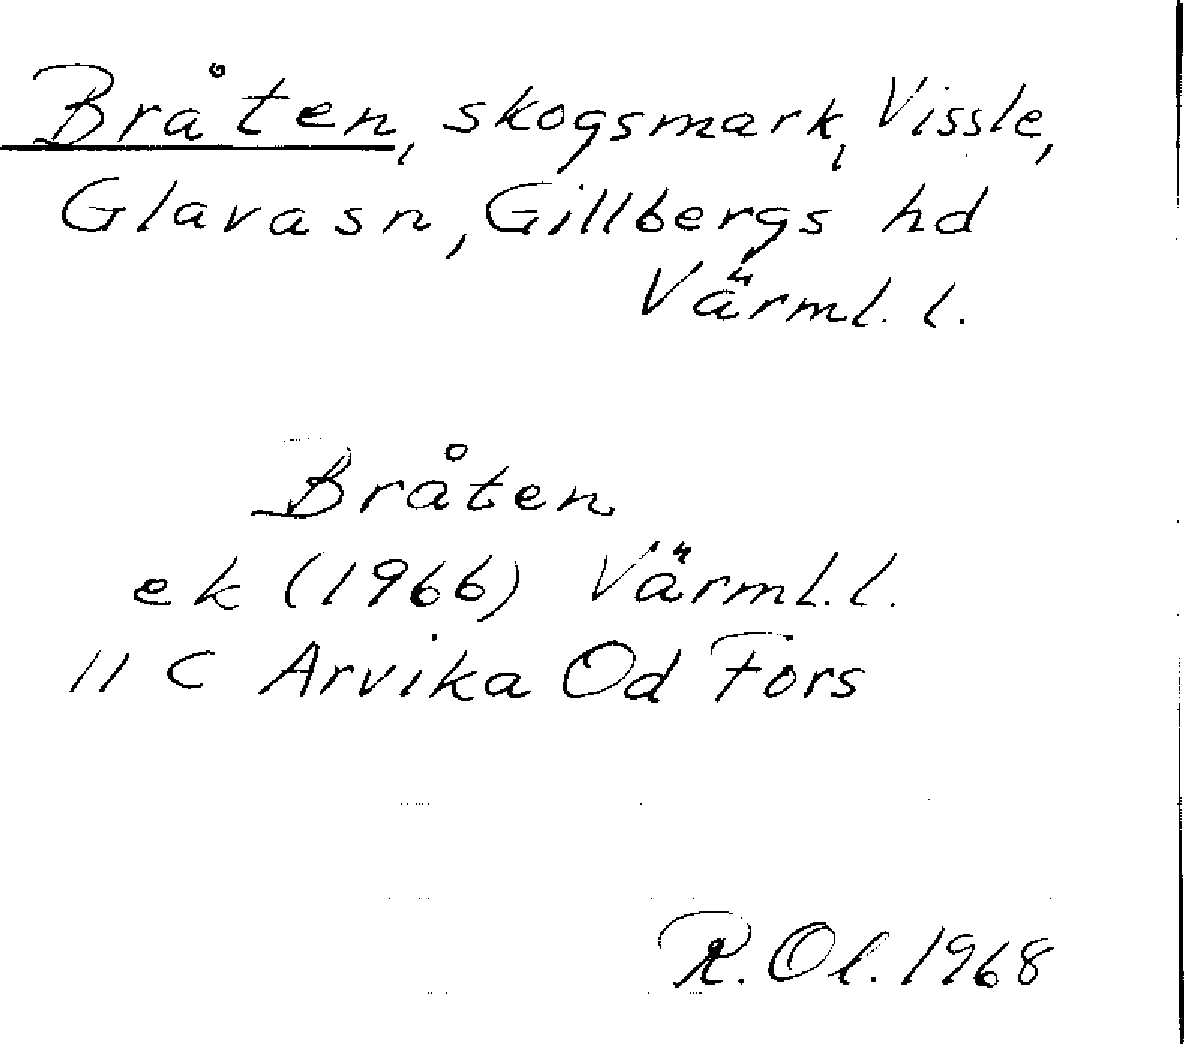 Bråten, skogsmark, Vissle,
Glava sn, Gillbergs hd
Värml. l.
Bråten
ek (1966) Värml. l.
11 C Arvika Od Fors
R. Ol. 1968